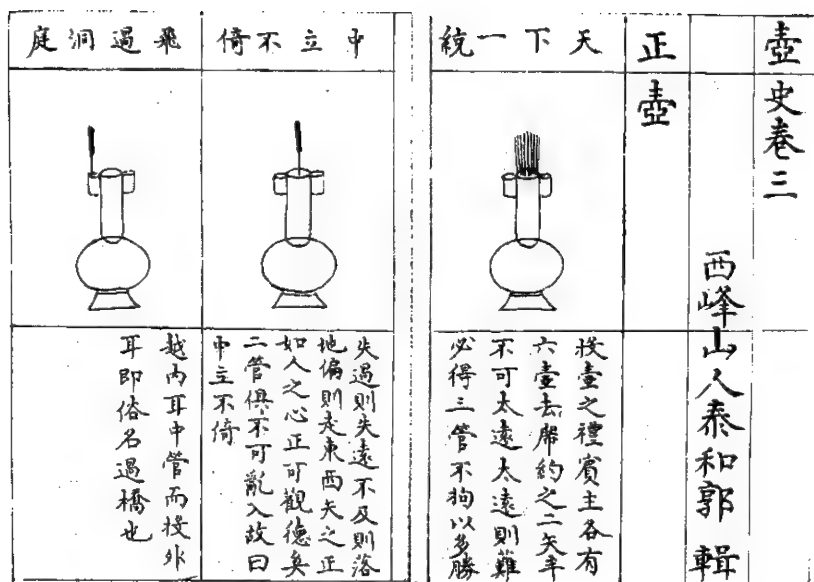 壺史卷三
西峰山人泰和郭 輯
正壺
天下一統
投壺之禮賓主各有
六壺去席約之二矢半
不可太遠太遠則難
必得三管不狥以多勝
中立不倚
失過則失遠不及則落
地偏則走東西矢之正
如人之心正可觀德矣
二管俱不可亂入故曰
中立不倚
飛過洞庭
越內耳中管而投外
耳即俗名過橋也